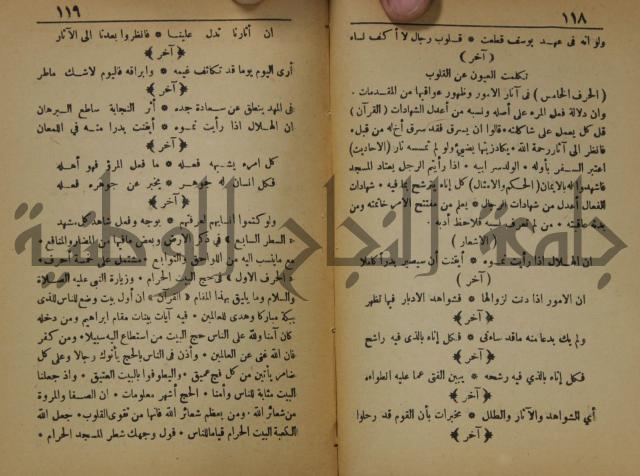 ١١٨
ولو انه فى عهد يوسف قطعت * قلوب رجال لا أكف نساء
( آخر )
تكلمت العيون عن القلوب
( الحرف الخامس ) فى آثار الامور وظهور عواقبها من المقدمات *
وان دلالة فعل المرء على أصله ونسبه من أعدل الشهادات ( القرآن )
قل كل يعمل على شاكلته * قالوا ان يسرق فقد سرق أخ له من قبل *
فانظر الى آثار رحمة الله * يكاد زيتها يضىء ولو لم تمسسه نار ( الاحاديث )
اعتبر السفر بأوله * الولد سر أبيه * اذا رأيتم الرجل يعتاد المسجد
فاشهدوا له بالايمان ( الحكم والامثال ) كل إناء يترشح بما فيه * شهادات
الفعال أعدل من شهادات الرجال * يعلم من مفتتح الامر خاتمته ومن
بدئه عاقبته * من لم تعرف نسبه فلاحظ أدبه *
( الاشعار )
ان الهلال اذا رأيت نموه * أيقنت أن سيصير بدرا كاملا
( آخر )
ان الامور اذا دنت لزوالها * فشواهد الادبار فيها تظهر
( آخر )
ولم يك بدعا منه ما قد ساءنى * فكل إناء بالذى فيه راشح
( آخر )
فكل إناء بالذى فيه رشحه * يبين الفتى عما عليه انطواءه
( آخر )
أي الشواهد والآثار والطلل * مخبرات بأن القوم قد رحلوا
( آخر )
١١٩
ان آثارنا تدل علينا * فانظروا بعدنا الى الآثار
( آخر )
أرى اليوم يوما قد تكاثف غيمه * وابراقه فاليوم لاشك ماطر
( آخر )
فى المهد ينطق عن سعادة جده * أثر النجابة ساطع البرهان
ان الهلال اذا رأيت نموه * أيقنت بدرا منه فى اللمعان
( آخر )
كل امرء يشبهه فعله * ما فعل المرؤ فهو أهله
فكل انسان له جوهر * يخبر عن جوهره فعله
( آخر )
ولو كتموا انسابهم لعرفتهم * بوجه وفعل شاهد كل مشهد
( السطر السابع ) فى ذكر الارض وبعض مافيها من المضار والمنافع *
مع ماينسب اليه من اللواحق والتوابع * مشتمل على خمسة أحرف *
( الحرف الاول ) فى حج البيت الحرام * وزيارة النبى عليه الصلاة
والسلام وما يليق بهذا المقام ( القرآن ) ان أول بيت وضع للناس للذى
ببكة مباركا وهدى للعالمين * فيه آيات بينات مقام ابراهيم ومن دخله
كان آمنا ولله على الناس حج البيت من استطاع اليه سبيلا * ومن كفر
فان الله غنى عن العالمين * وأذن فى الناس بالحج يأتوك رجالا وعلى كل
ضامر يأتين من كل فج عميق * وليطوفوا بالبيت العتيق * واذ جعلنا
البيت مثابة للناس وأمنا * الحج أشهر معلومات * ان الصفا والمروة
من شعائر الله * ومن يعظم شعائر الله فانها من تقوى القلوب * جعل الله
الكعبة البيت الحرام قياما للناس * فول وجهك شطر المسجد الحرام *
جامعة النجاح الوطنية